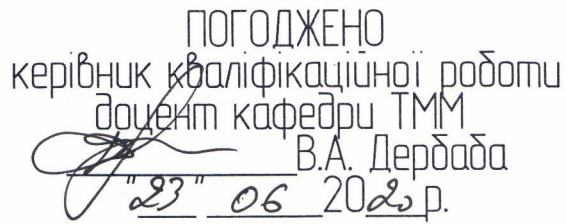 ПОГОДЖЕНО
керівник кваліфікаційної роботи
доцент кафедри ТММ
В.А. Дербаба
"23" 06 2020р.